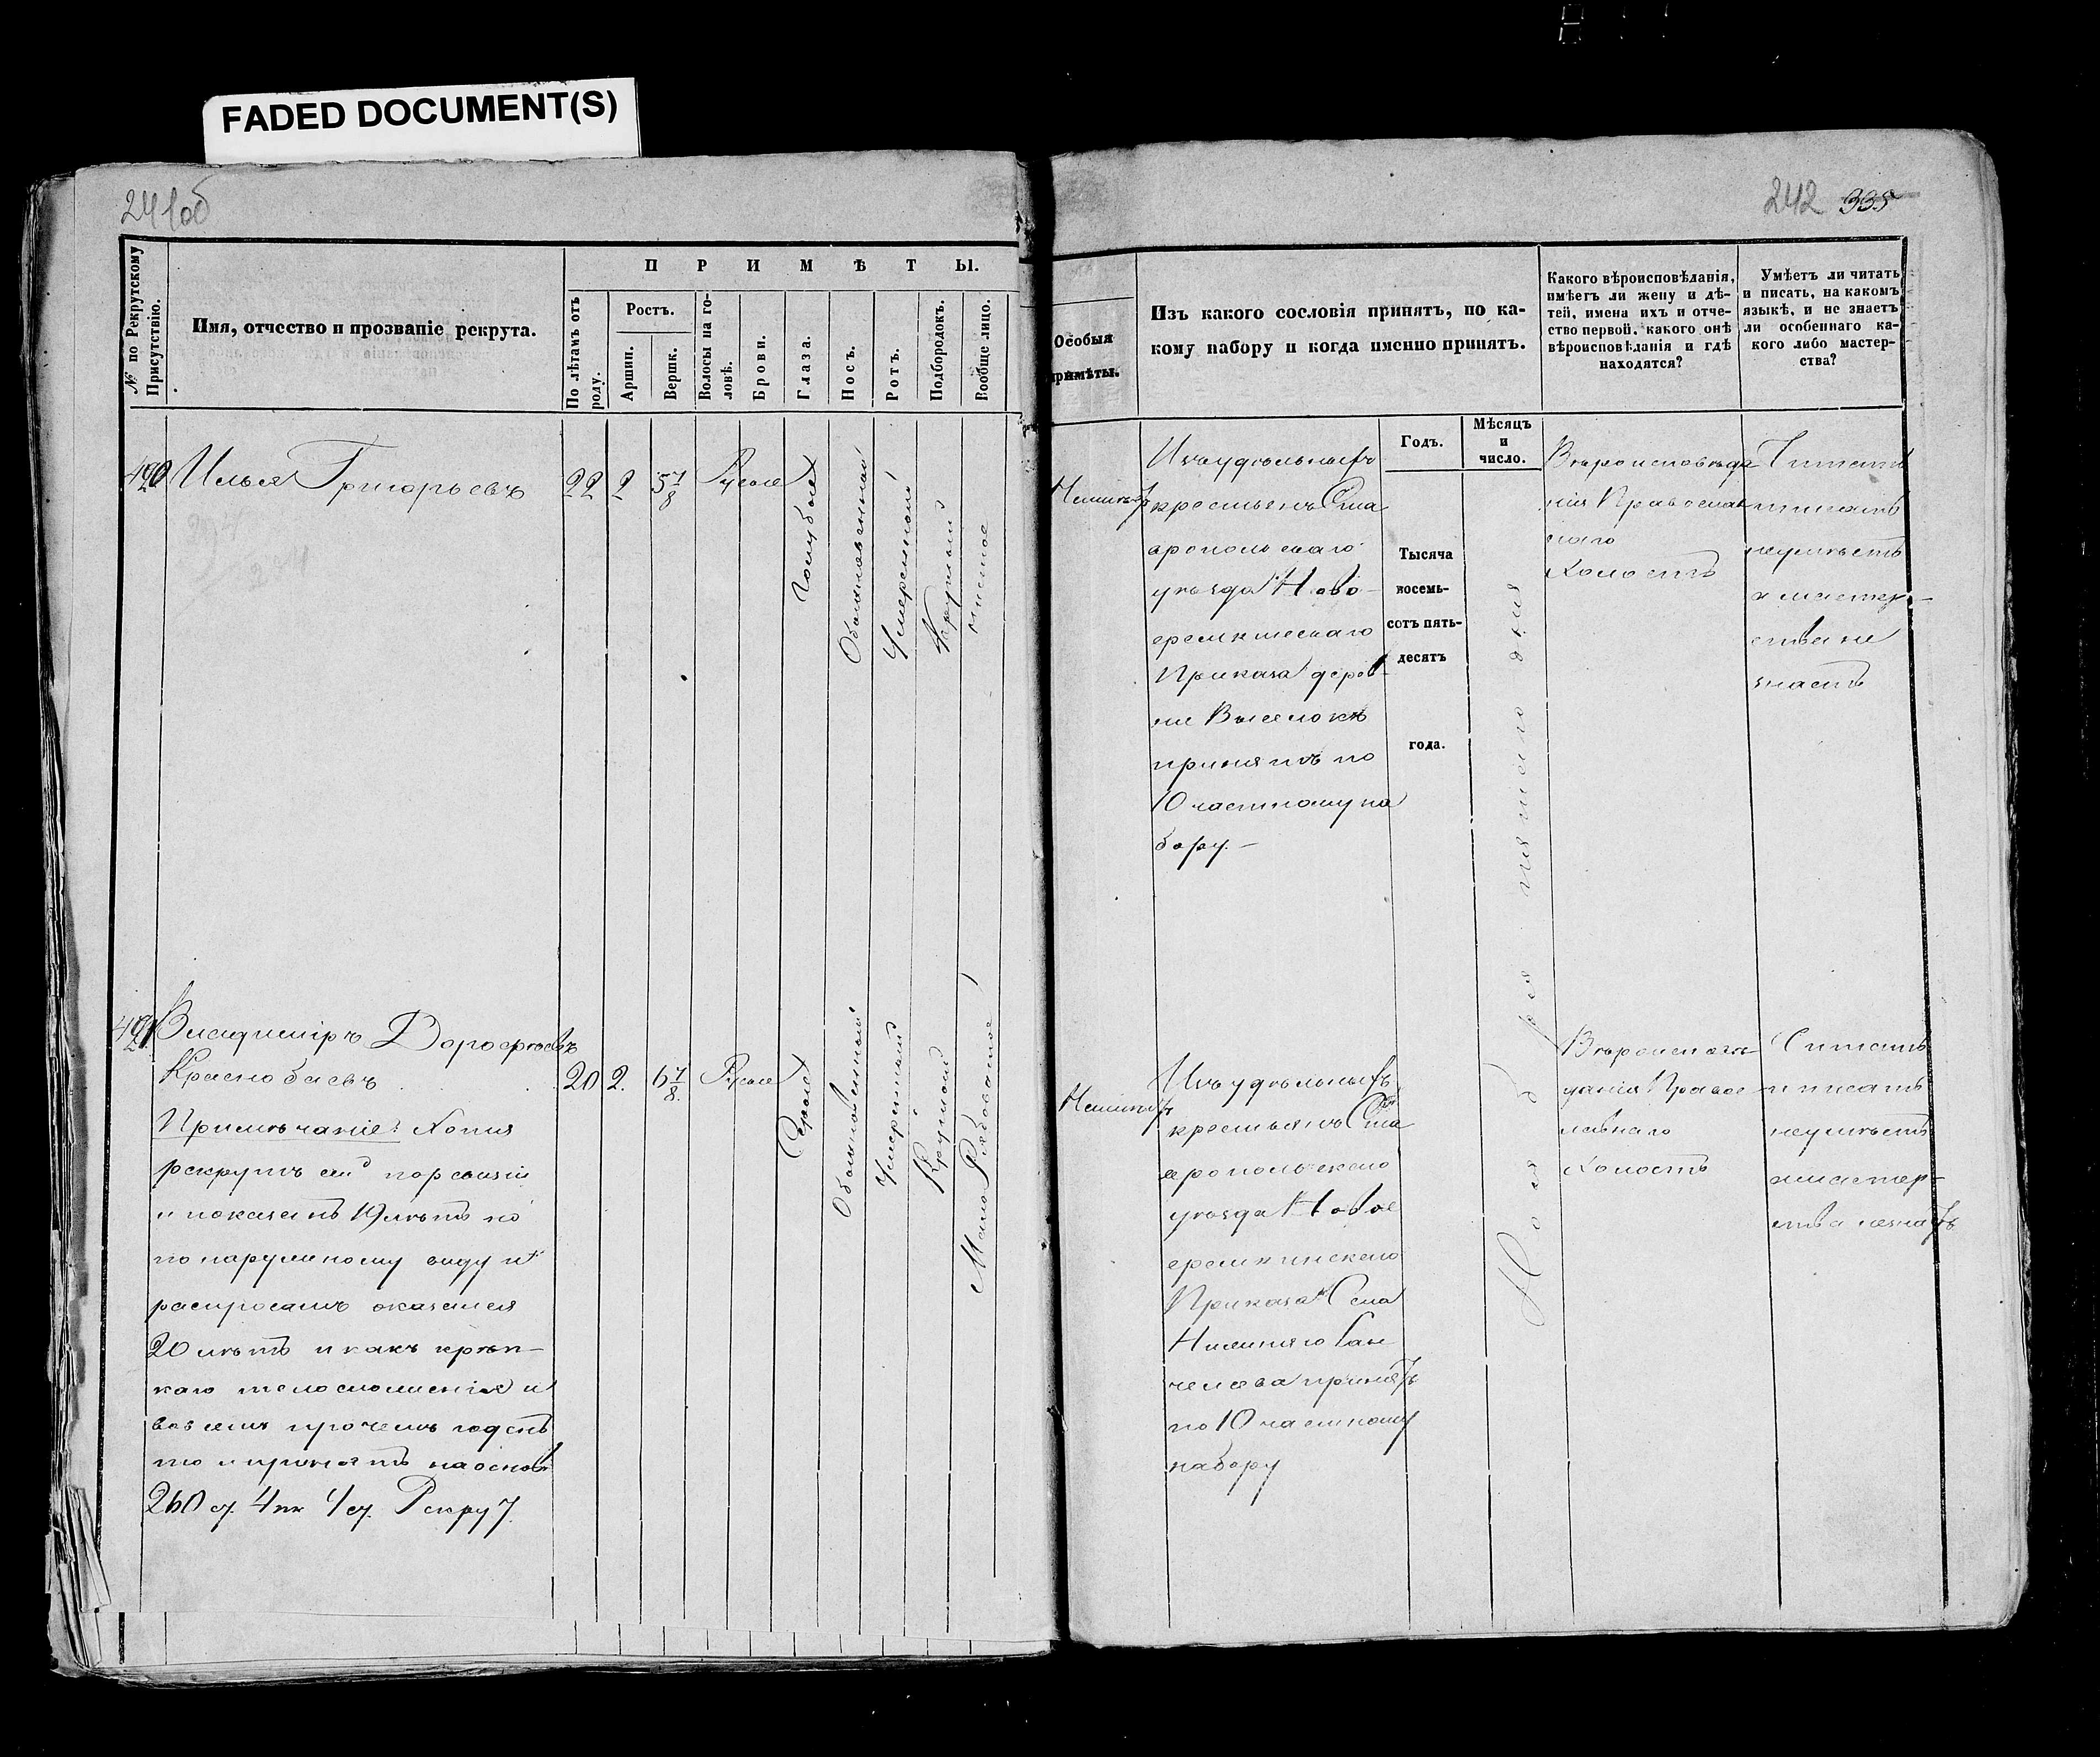 FADED DOCUMENT(S)
241об
№ по Рекрутскому Присутствію.
Имя, отчество и прозваніе рекрута.
ПРИМѢТЫ.
По лѣтамъ отъ роду.
Ростъ.
Аршин.
Вершк.
Волосы на головѣ.
Брови.
Глаза.
Носъ.
Ротъ.
Подбородокъ.
Вообще лицо.
490 Илья Григорьевъ 22 2 5 7/8 Русые
Голубые
Обыкновенный
Умеренный
Круглый
чистое
491 Владиміръ Дорофѣевъ
Краснобаевъ 20 2. 6 7/8. Русые
Серые
Обыкновенный
Умеренный
Круглый
Мало Рябоватое
Примѣчаніе: Хотя
рекрутъ сей по ревизіи
и показанъ 19 лѣтъ но
по наружному виду и
распросамъ оказался
20 лѣтъ и какъ крѣп-
каго телосложенія и
во всемъ прочемъ годенъ
то и принятъ на основ
260 ст. 4 пк 4 ст. Рекрут.
242 335
Особыя
примѣты.
Изъ какого сословія принятъ, по ка-
кому набору и когда именно принятъ.
Какого вѣроисповѣданія,
имѣетъ ли жену и дѣ-
тей, имена ихъ и отче-
ство первой, какого онѣ
вѣроисповѣданія и гдѣ
находятся?
Умѣетъ ли читать
и писать, на какомъ
языкѣ, и не знаетъ
ли особеннаго ка-
кого либо мастер-
ства?
Годъ.
Мѣсяцъ
и
число.
Неимѣетъ
Изъ удѣльныхъ
крестьянъ Ста
вропольскаго
уѣзда Ново-
еремкинскаго
Приказа дерев
ни Выселокъ
принятъ по
10 частному на
бору. –
Тысяча
восемь-
сотъ пять-
десятъ
года.
Ноября пятаго дня
Вѣроисповѣда
нія Православ
наго
Холостъ
Читать
писать
неумѣетъ
а мастер-
ства не
знаетъ
Неимѣетъ
Изъ удѣльныхъ
крестьянъ Ста
вропольскаго
уѣзда Ново
еремкинскаго
Приказа Села
Нижняго Сан
челеева принятъ
по 10 частному
набору
Вѣроисповѣ
данія Правос
лавнаго
Холостъ
Читать
и писать
неумѣетъ
а мастер-
ства незнаетъ